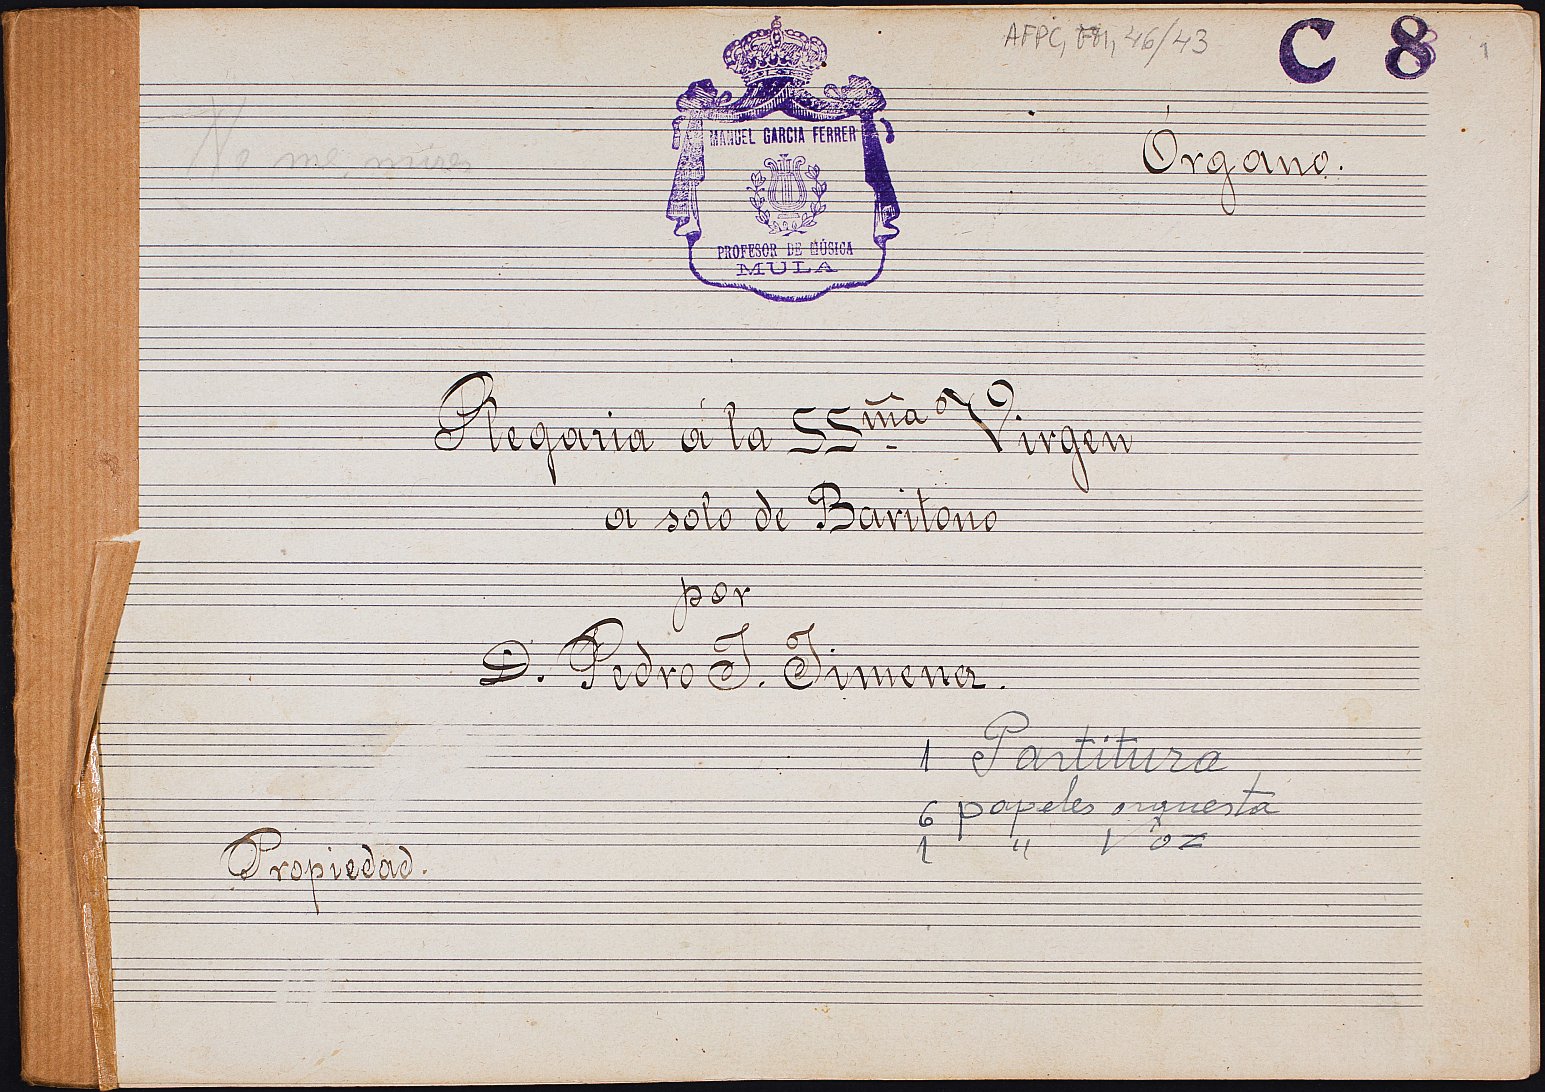 AFPC, FM, 46/43
C 8
1
MANUEL GARCIA FERRER
PROFESOR DE MÚSICA
MULA
Órgano.
No me mires
Plegaria á la SSm̃a Virgen
a solo de Baritono
por
D. Pedro J. Jimena.
1 Partitura
6 papeles orquesta
1 " Voz
Propiedad.